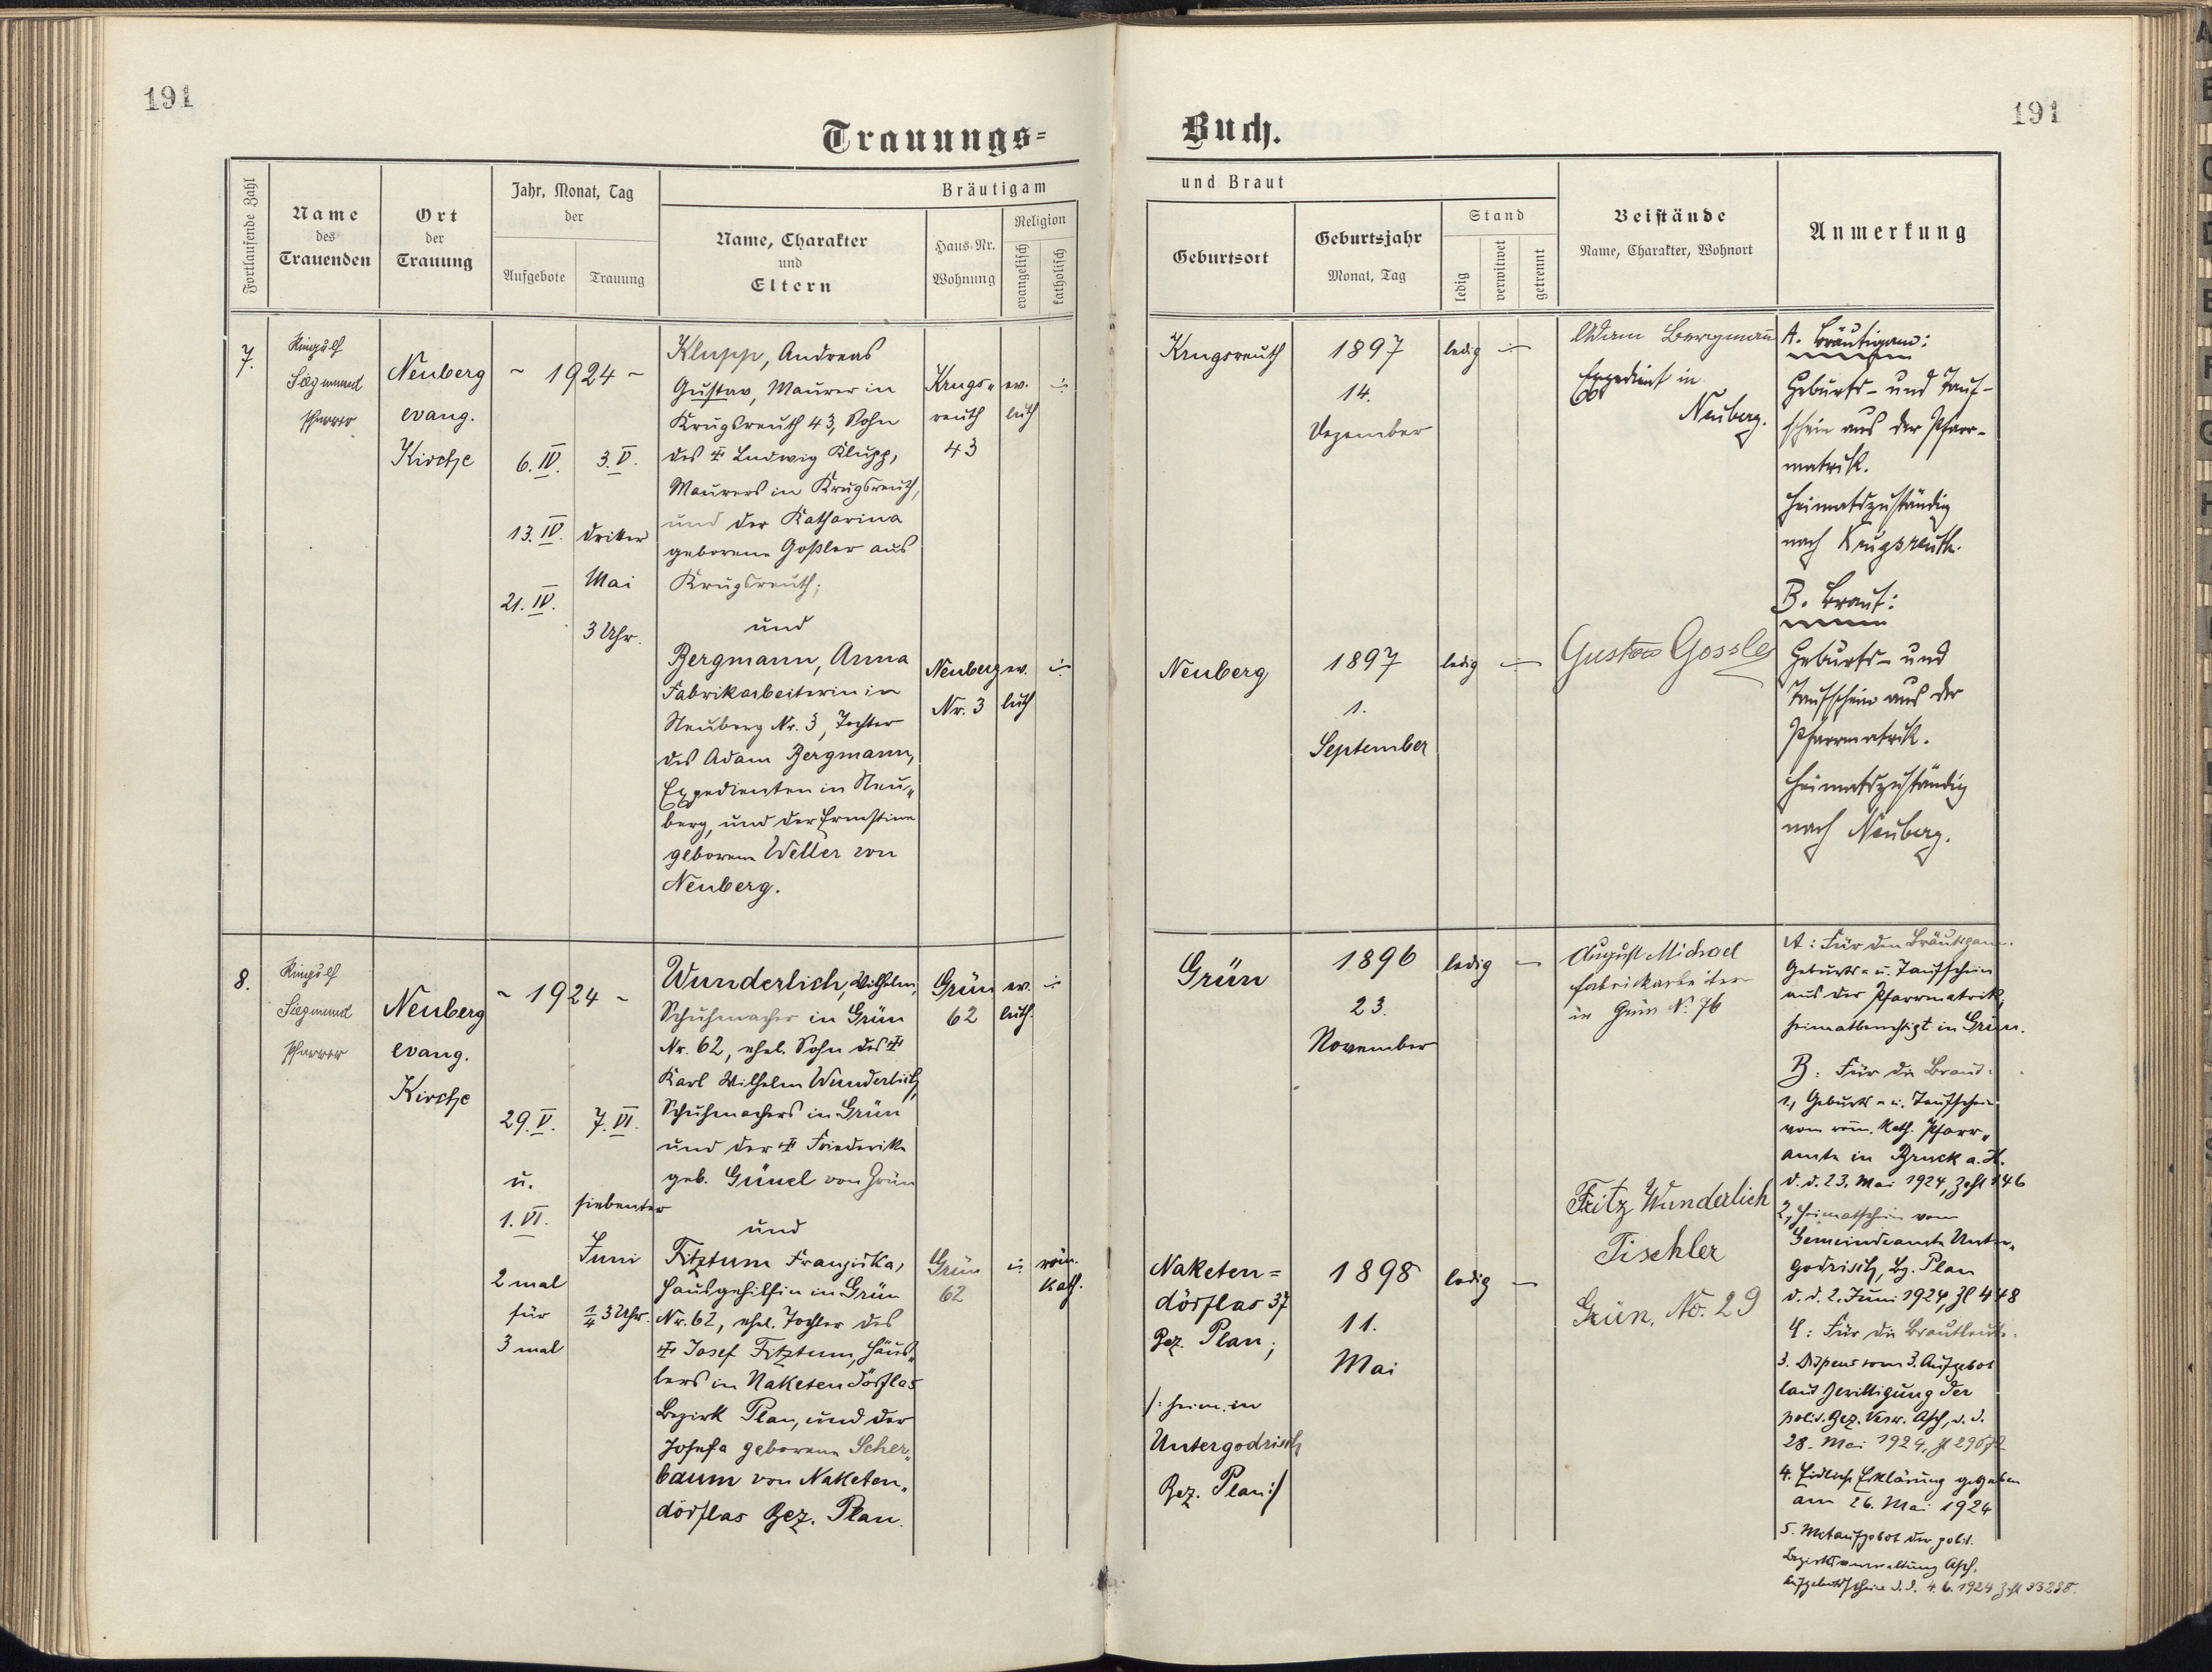 191
191
Trauungs=
Buch.
Fortlaufende Zahl
Name
des
Trauenden
Ort
der
Trauung
Jahr, Monat, Tag
der
Aufgebote
Trauung
Bräutigam
Name, Charakter
und
Eltern
Haus-Nr.
Wohnung
Religion
evangelisch
katholisch
und Braut
Geburtsort
Geburtsjahr
Monat, Tag
Stand
ledig
verwitwet
getrennt
Beistände
Name, Charakter, Wohnort
Anmerkung
7.
Ringulf
Siegmund
Pfarrer
Neuberg
evang.
Kirche
~ 1924 ~
6. IV.
13. IV.
21. IV.
3. V.
dritter
Mai
3 Uhr.
Klupp, Andreas
Gustav, Maurer in
Krugsreuth 43, Sohn
des Ludwig Klupp,
Maurers in Krugsreuth,
und der Katharina
geborene Goßler aus
Krugsreuth;
und
Bergmann, Anna
Fabrikarbeiterin in
Neuberg Nr. 3, Tochter
des Adam Bergmann,
Expedienten in Neu„
berg, und der Ernstine
geborene Weller von
Neuberg.
Krugs„
reuth
43
ev.
luth
Neuberg
Nr. 3
ev.
luth
Krugsreuth
1897
14.
Dezember
ledig
Neuberg
1897
1.
September
ledig
Adam Bergmann
Expedient in
Neuberg.
Gustav Gossler
A. Bräutigam:
Geburts- und Tauf-
schein aus der Pfarr-
matrik.
Heimatszuständig
nach Krugsreuth.
B. Braut:
Geburts- und
Taufschein aus der
Pfarrmatrik.
Heimatszuständig
nach Neuberg.
8.
Ringulf
Siegmund
Pfarrer
Neuberg
evang.
Kirche
~ 1924 ~
29. V.
u.
1. VI.
2 mal
für
3 mal
7. VI.
siebenter
Juni
1/4 3 Uhr.
Wunderlich, Wilhelm,
Schuhmacher in Grün
Nr. 62, ehel. Sohn des
Karl Wilhelm Wunderlich,
Schuhmachers in Grün
und der Friederike
geb. Günel von Grün
und
Fitztum Franziska,
Hausgehilfin in Grün
Nr. 62, ehel. Tochter des
Josef Fitztum, Häus„
lers in Naketendörflas
Bezirk Plan, und der
Josefa geborene Scher„
baum von Naketen„
dörflas Bez. Plan.
Grün
62
ev.
luth.
Grün
62
röm.
kath.
Grün
1896
23.
November
ledig
Naketen=
dörflas 37
Bez. Plan;
/: heim. in
Untergodrisch
Bez. Plan :/
1898
11.
Mai
ledig
August Michael
Fabrikarbeiter
in Grün N. 76
Fritz Wunderlich
Tischler
Grün, No. 29
A: Für den Bräutigam.
Geburts- u. Taufschein
aus der Pfarrmatrik,
heimatberechtigt in Grün.
B: Für die Braut:
1., Geburts- u. Taufschein
vom röm. kath. Pfarr„
amte in Bruck a. H.
d. d. 23. Mai 1924, Zahl 146
2., Heimatschein vom
Gemeindeamte Unter„
godrisch, Bz. Plan
d. d. 2. Juni 1924, Zl 448
Für die Brautleute.
3. Dispens vom 3. Aufgebot
laut Bewilligung der
polit. Bez. Verw. Asch, d. d.
28. Mai 1924,
4. Eidliche Erklärung gegeben
am 26. Mai 1924
5. Mitaufgebot der polit.
Bezirksverwaltung Asch.
Aufgebotsschein d. d. 4. 6. 1924 Zahl 33238.